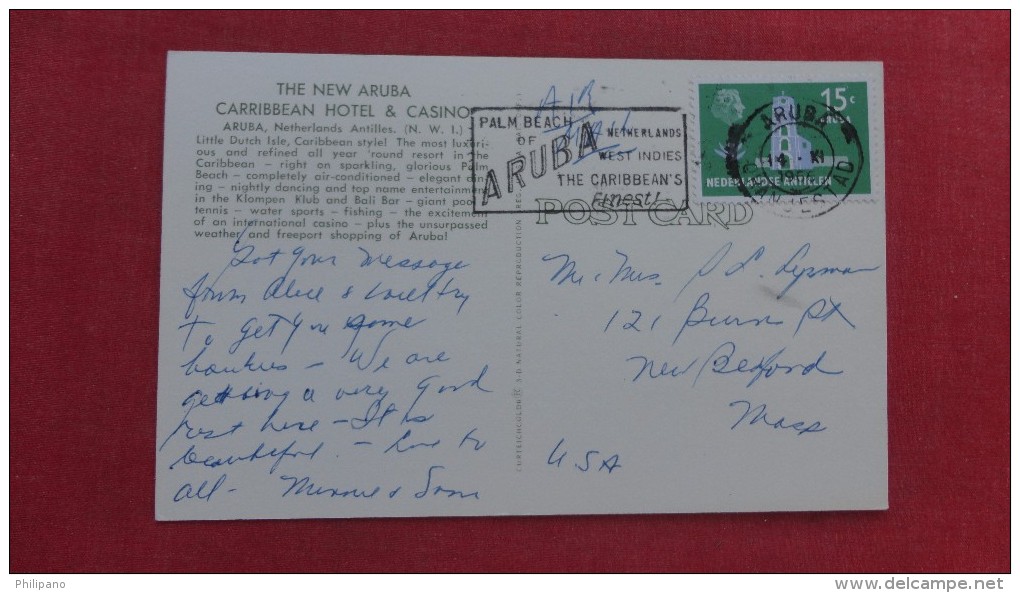 THE NEW ARUBA
CARRIBBEAN HOTEL & CASINO
ARUBA, Netherlands Antilles. (N. W. I.)
Little Dutch Isle, Caribbean style! The most luxuri-
ous and refined all year 'round resort in the
Caribbean – right on sparkling, glorious Palm
Beach – completely air-conditioned – elegant din
ing – nightly dancing and top name entertainment
in the Klompen Klub and Bali Bar – giant pool
tennis – water sports – fishing – the excitement
of an international casino – plus the unsurpassed
weather and freeport shopping of Aruba!
Got your message
from Alice & will try
to get you some
– We are
getting a very good
rest here – It is
beautiful. – Love to
all – Minnie & Sam
AIR
MAIL
PALM BEACH
OF
ARUBA
NETHERLANDS
WEST INDIES
THE CARIBBEAN'S
Finest!
15c
ARUBA
NEDERLANDSE ANTILLEN
ARUBA
14 XI
ORANJESTAD
POST CARD
CURTEICHCOLOR 3-D NATURAL COLOR REPRODUCTION
Mr. Mrs. S L. Lipman
121
New Bedford
Mass
USA
Philipano
www.delcampe.net